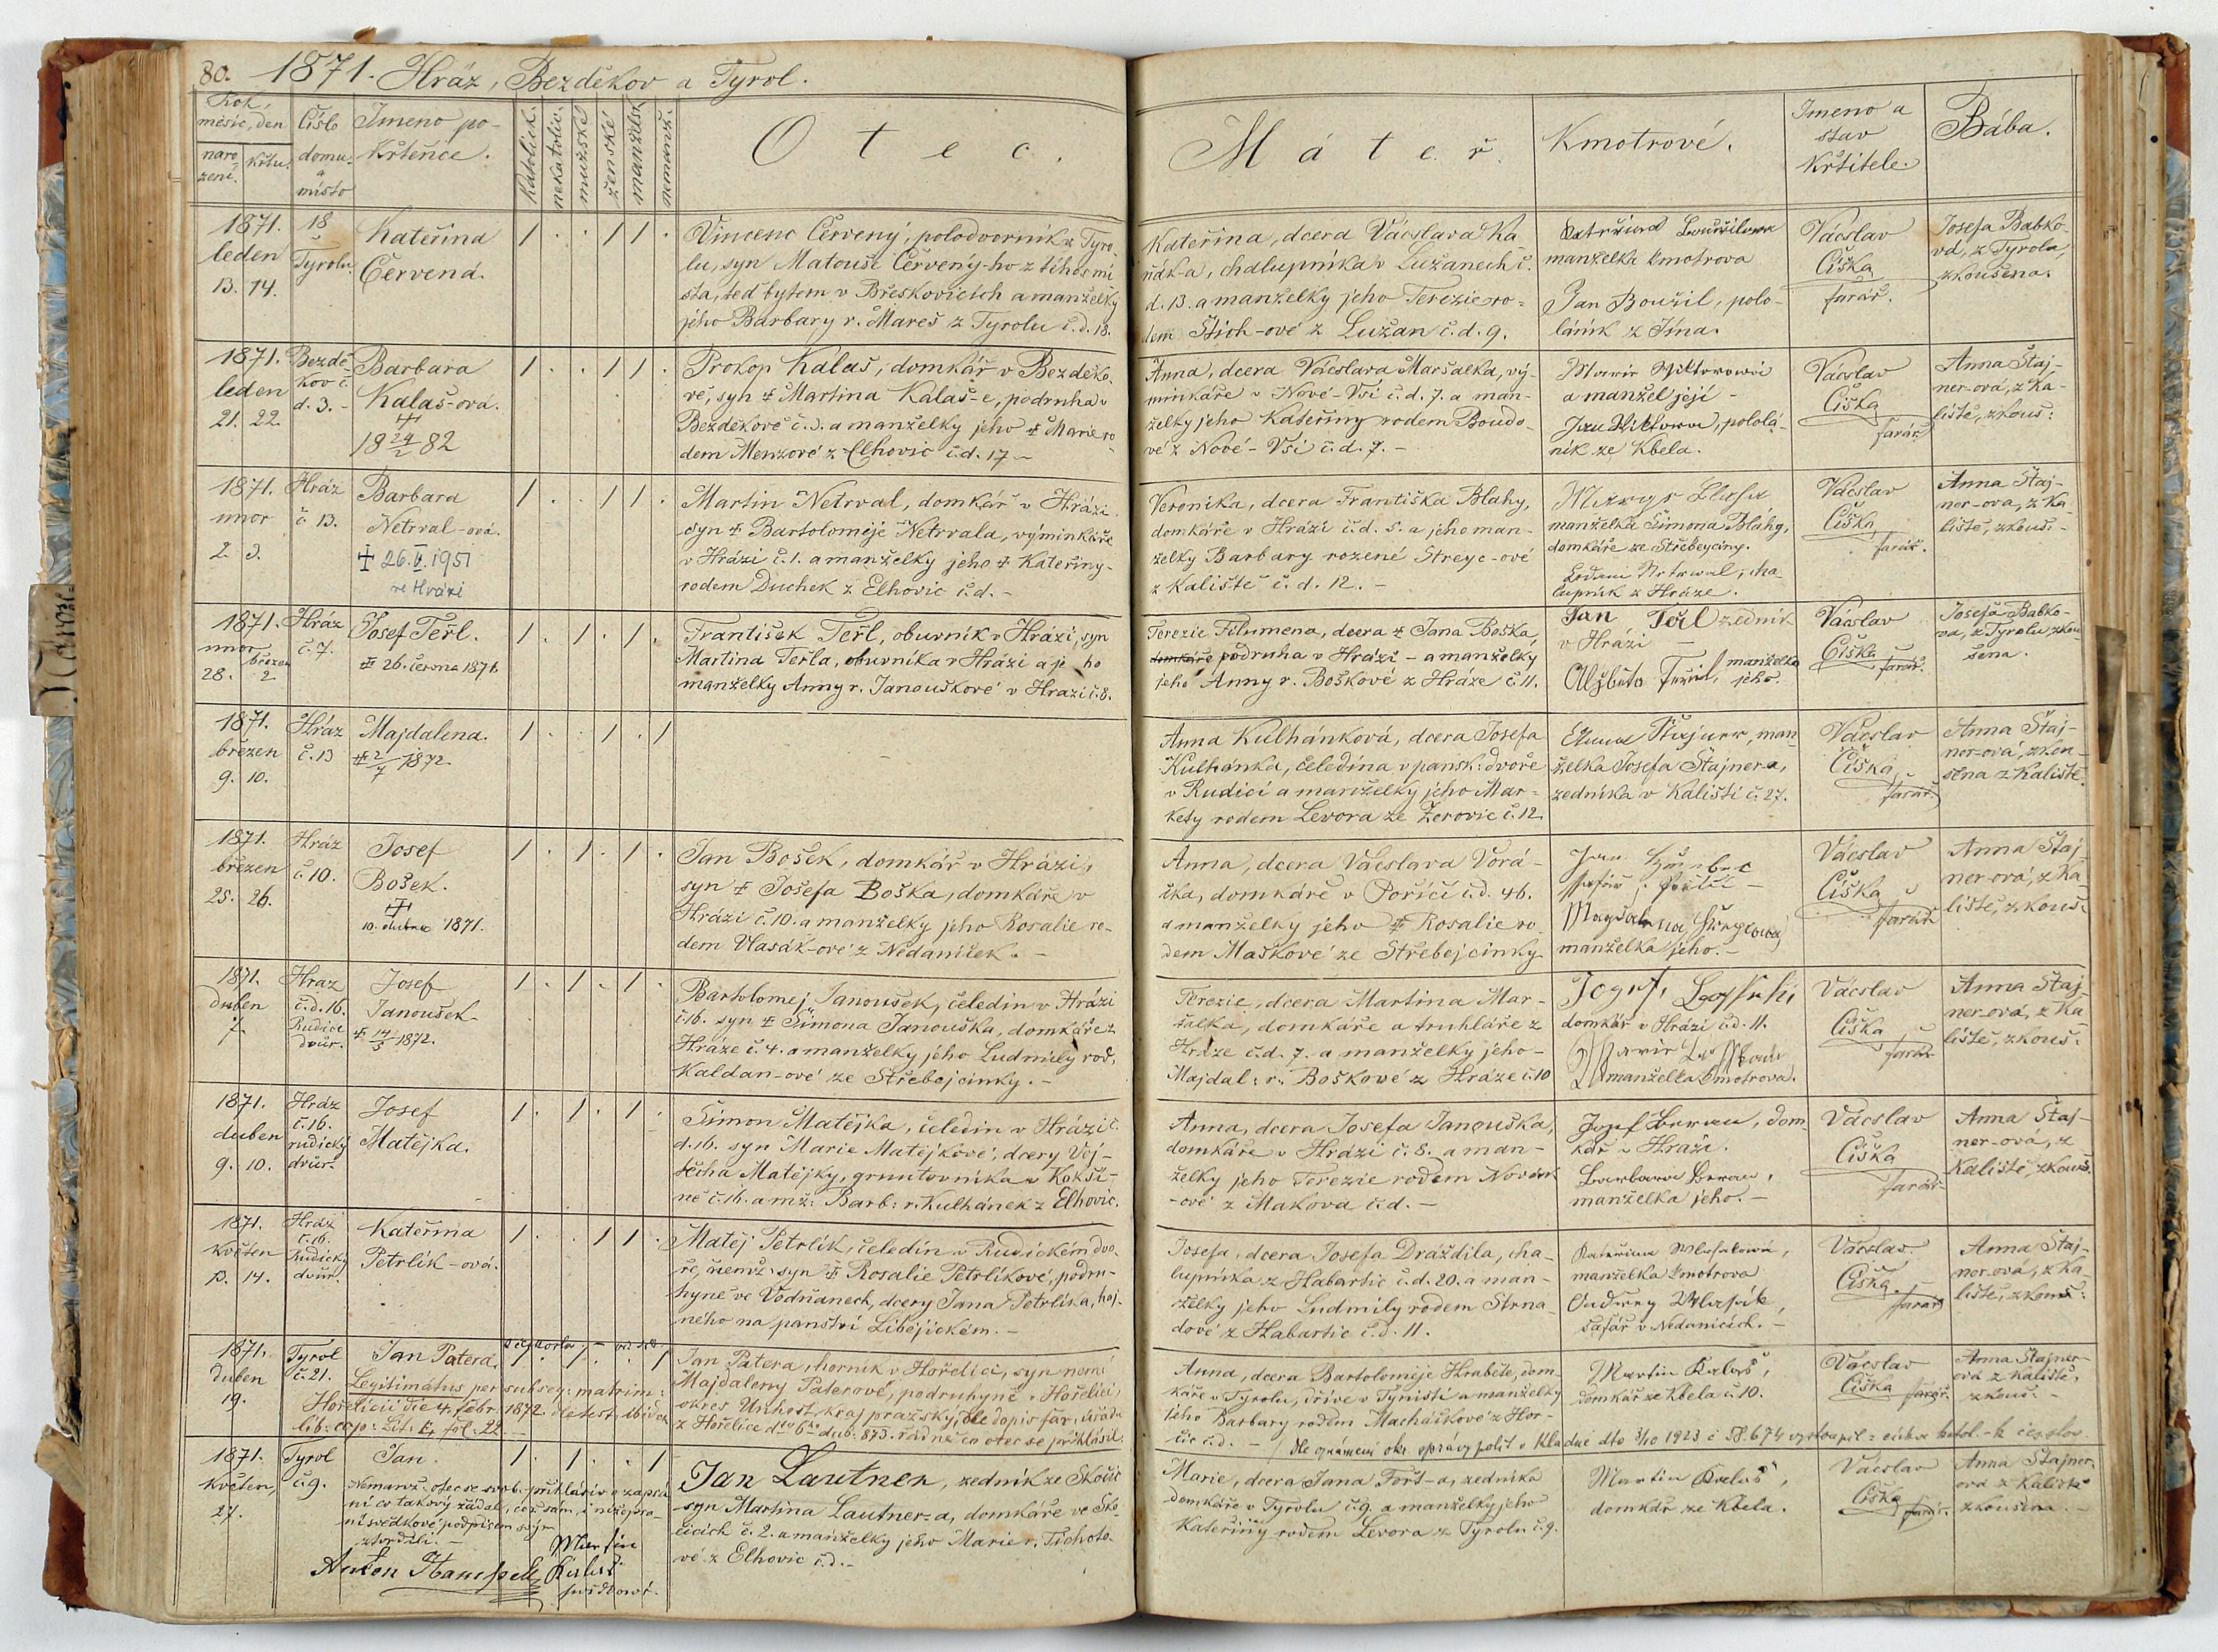 80. 1871. Hráz, Bezděkov a Tyrol.
Rok, měsíc, den
narození. křtu.
Číslo domu a místo
Jmeno pokřtěnce.
Katolick.
nekatolic.
mužské
ženské
manželsk
nemanž.
Otec.
Máteř.
Kmotrové.
Jmeno a stav křtitele.
Bába.
1871.
leden
13. 14.
18
Tyrolu
Kateřina
Červená.
Vincenc Červený, polodvorník z Tyro-
lu, syn Matouše Červený-ho z téhož mí
sta, teď bytem v Břeskovicích a manželky
jeho Barbary r. Mareš z Tyrolu č. d. 18.
Kateřina, dcera Václava Ka-
ňák-a, chalupníka v Lužanech č.
d. 13. a manželky jeho Terezie ro-
dem Štich-ové z Lužan č. d. 9.
manželka kmotrova
Jan Boužil, polo-
láník z Jína.
Václav
Čiška
farář.
Josefa Babko-
vá, z Tyrola,
zkoušena.
1871.
leden
21. 22.
Bezdě-
kov č.
d. 3.
Barbara
Kalaš-ová.
18 24/2 82
Prokop Kalaš, domkář v Bezděko-
vě, syn ✝ Martina Kalaš-e, podruha v
Bezděkově č. 3. a manželky jeho ✝ Marie ro-
dem Menzové z Elhovic č. d. 17
Anna, dcera Václava Maršalka, vý-
minkáře v Nové-Vsi č. d. 7. a man-
želky jeho Kateřiny rodem Boudo-
vé z Nové-Vsi č. d. 7.
a manžel její
pololá-
ník ze Kbela.
Václav
Čiška
farář
Anna Štaj-
ner-ová, z Ka-
liště, zkouš:
1871.
unor
2. 3.
Hráz
č. 13.
Barbara
Netrval-ová.
✝ 26. II. 1951
ve Hrázi
Martin Netrval, domkář v Hrázi
syn ✝ Bartoloměje Netrvala, výminkáře
v Hrázi č. 1. a manželky jeho ✝ Kateřiny
rodem Duchek z Elhovic č. d. -
Veronika, dcera Františka Blahy,
domkáře v Hrázi č. d. 5. a jeho man-
želky Barbary rozené Streyc-ové
z Kaliště č. d. 12.
manželka Šimona Bláhy,
domkáře ze Střebeyciny.
cha-
lupník z Hráze.
Václav
Čiška
farář.
Anna Štaj-
ner-ova, z Ka
liště, zkouš.
1871.
unor březen
28. 2
Hráz
č. 7.
Josef Terl.
✝ 26. června 1871.
František Teřl, obuvník v Hrázi, syn
Martina Teřla, obuvníka v Hrázi a je ho
manželky Anny r. Janouškové v Hrazi č. 8.
Terezie Filumena, dcera ✝ Jana Boška,
domkáře podruha v Hrázi - a manželky
jeho Anny r. Boškové z Hráze č. 11.
Jan Teřl zedník
v Hrázi
Alžběta manželka
jeho.
Václav
Čiška
farář.
Josefa Babko-
va, z Tyrolu zkou
šena.
1871.
březen
9. 10.
Hráz
č. 13
Majdalena.
✝ 2/7 1872.
Anna Kulhánková, dcera Josefa
Kulhánka, čeledína v pansk: dvoře
v Rudici a manželky jeho Mar-
kety rodem Levora ze Žerovic č. 12.
man-
želka Josefa Štajnera,
zedníka v Kališti č. 27.
Václav
Čiška
farář
Anna Štaj-
ner-ová, zkou-
šena z Kaliště.
1871.
březen
25. 26.
Hráz
č. 10.
Josef
Bošek.
10. dubna 1871.
Jan Bošek, domkář v Hrázi,
syn ✝ Josefa Boška, domkáře v
Hrázi č. 10. a manželky jeho Rosalie ro-
dem Vlasák-ové z Nedaniček. -
Anna, dcera Václava Vorá-
čka, domkáře v Poříčí č. d. 46.
a manželky jeho ✝ Rosalie ro-
dem Maškové ze Střebejcinky
manželka jeho. -
Václav
Čiška
farář
Anna Štaj-
ner-ová, z Ka-
liště, zkouš.
1871.
duben
7.
Hraz
č. d. 16.
Rudice
dvůr.
Josef
Janoušek
✝ 14/3 1872.
Bartoloměj Janoušek, čeledín v Hrázi
č. 16. syn ✝ Šimona Janouška, domkáře z
Hráze č. 4. a manželky jeho Ludmily rod.
Kaldan-ové ze Střebejcinky. -
Terezie, dcera Martina Mar-
šalka, domkáře a truhláře z
Hráze č. d. 7. a manželky jeho-
Majdal: r. Boškowé z Hráze č. 10
domkář v Hrázi č. d. 11.
manželka kmotrova.
Václav
Čiška
farář
Anna Štaj-
ner-ová, z Ka
liště, zkouš:
1871.
duben
9. 10.
Hráz
č. 16.
rudický
dvůr.
Josef
Matějka.
Šimon Matějka, čeledín v Hrázi č.
d. 16. syn Marie Matějkové, dcery Voj-
těcha Matějky, gruntovníka v Kokší-
ně č. 16. a mž: Barb: r. Kulhánek z Elhovic.
Anna, dcera Josefa Janouška,
domkáře v Hrázi č. 8. a man-
želky jeho Terezie rodem Novák
-ové z Makova č. d. -
dom-
kář v Hrazi.
manželka jeho. -
Václav
Čiška
farář
Anna Štaj-
ner-ová, z
Kaliště, zkouš.
1871.
květen
13. 14.
Hráz
č. 16.
Rudický
dvůr.
Kateřina
Petrlík-ová.
Matěj Petrlík, čeledín v Rudickém dvo-
ře, nemž. syn ✝ Rosalie Petrlíkové, podru-
hyně ve Vodňanech, dcery Jana Petrlíka, haj-
ného na panství Libějickém. -
Josefa, dcera Josefa Draždila, cha-
lupníka z Habartic č. d. 20. a man-
želky jeho Ludmily rodem Strna
dové z Habartic č. d. 11.
manželka kmotrova
šafář v Nedanicích. -
Václav
Čiška
farář
Anna Štaj-
ner-ová, z Ka-
liště, zkouš:
1871.
duben
19.
Tyrol
č. 21.
Jan Patera.
Legitimátus per subseq: matrim:
Hořelicii die 4. febr. 1872. 
lib: cop: Lit: E, fol. 22.
Jan Patera, horník v Hořelici, syn nemž
Majdaleny Paterové, podruhyně v Hořelici,
okres Unhošt, kraj pražský, dle dopis far. úřadu
z Hořelice dto 6ho dub: 873. řádně co otec se přihlásil.
Anna, dcera Bartoloměje Hraběte, dom-
káře v Tyrolu, dříve v Týništi a manželky
jeho Barbary rodem Macháčkové z Hor-
čic č. d. -
Dle oznámení okr. správy polit. v Kladně dto 3/10 1923 č 58.674 vystoupil z církve katol. - k českoslov.
Martin Kalaš,
domkář ze Kbela č. 10.
Václav
Čiška farář.
Anna Štajner-
ová z Kaliště,
zkouš.
1871.
květen,
27.
Tyrol
č. 9.
Jan.
Nemanž. otec se svob. přihlásiv o zapsá
ní co takový žádal, což sám, i nížepsa-
ní svědkové podpisem svým
ztvrdili. -
Martin
Kalaš
svědkové.
Jan Lautner, zedník ze Skočic
syn Martina Lautner-a, domkáře ve Sko-
čicích č. 2. a manželky jeho Marie r. Tichoto-
vé z Elhovic č. d. -
Marie, dcera Jana Fořt-a, zedníka
domkáře v Tyrolu č. 9. a manželky jeho
Kateřiny rodem Levora z Tyrolu č. 9.
Martin Kalaš,
domkář ze Kbela.
Václav
Čiška
farář.
Anna Štajner-
ová z Kaliště
zkoušena.